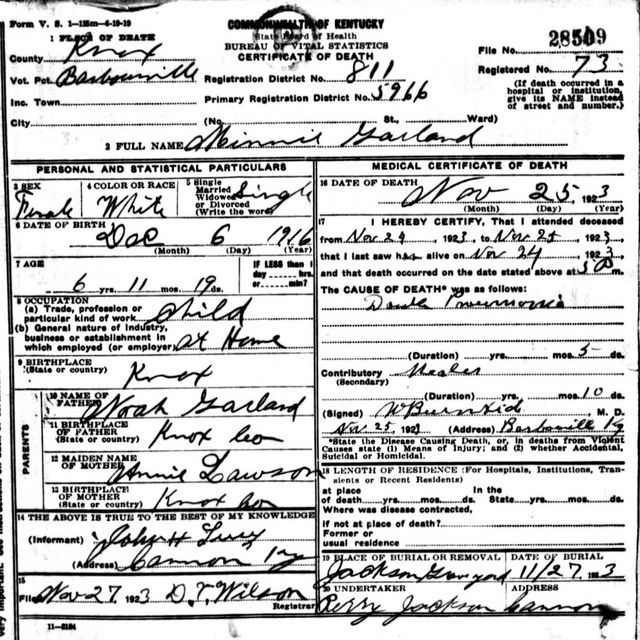 Form V. S. 1-125m-4-19-19
COMMONWEALTH OF KENTUCKY
State Board of Health
BUREAU OF VITAL STATISTICS
CERTIFICATE OF DEATH
1 PLACE OF DEATH
County Knox
Vot. Pct. Barbourville
Inc. Town
City
Registration District No. 811
Primary Registration District No. 5966
(No. St., Ward)
File No. 28509
Registered No. 73
(If death occurred in a
hospital or institution,
give its NAME instead
of street and number.)
2 FULL NAME Minnie Garland
PERSONAL AND STATISTICAL PARTICULARS
3 SEX
Female
4 COLOR OR RACE
White
5 Single
Married
Widowed
or Divorced
(Write the word)
Single
6 DATE OF BIRTH
Dec 6 1916
(Month) (Day) (Year)
7 AGE
6 yrs. 11 mos. 19 ds.
IF LESS than 1
day hrs.
or min.?
8 OCCUPATION
(a) Trade, profession or
particular kind of work Child
(b) General nature of industry,
business or establishment in
which employed (or employer) at Home
9 BIRTHPLACE
(State or country) Knox
PARENTS
10 NAME OF
FATHER Noah Garland
11 BIRTHPLACE
OF FATHER
(State or country) Knox Co
12 MAIDEN NAME
OF MOTHER Annie Lawson
13 BIRTHPLACE
OF MOTHER
(State or country) Knox Co
14 THE ABOVE IS TRUE TO THE BEST OF MY KNOWLEDGE
(Informant) John H
(Address) Cannon Ky
15
Filed Nov 27 1923 D. T. Wilson
Registrar
11-3184
MEDICAL CERTIFICATE OF DEATH
16 DATE OF DEATH
Nov 25, 1923
(Month) (Day) (Year)
17 I HEREBY CERTIFY, That I attended deceased
from Nov 24, 1923, to Nov 25, 1923,
that I last saw h alive on Nov 24, 1923,
and that death occurred on the date stated above at m.
The CAUSE OF DEATH* was as follows:
Double Pneumonia
(Duration) yrs. mos. 5 ds.
Contributory Measles
(Secondary)
(Duration) yrs. mos. 10 ds.
(Signed) M. D.
Nov. 25, 1923 (Address) Barbourville Ky
*State the Disease Causing Death, or, in deaths from Violent
Causes state (1) Means of Injury; and (2) whether Accidental,
Suicidal or Homicidal.
18 LENGTH OF RESIDENCE (For Hospitals, Institutions, Tran-
sients or Recent Residents)
at place In the
of death yrs. mos. ds. State yrs. mos. ds.
Where was disease contracted,
if not at place of death?
Former or
usual residence
19 PLACE OF BURIAL OR REMOVAL
Jackson Graveyard
DATE OF BURIAL
11/27, 1923
20 UNDERTAKER
Perry Jackson
ADDRESS
Cannon